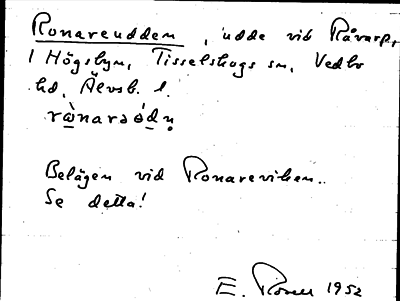 Ronareudden, udde vid Råvarp,
i Högsbyn, Tisselskogs sn, Vedbo
hd, Älvsb. l.
rànaraø̀dn̥
Belägen vid Ronareviken.
Se detta!
E. Rosell 1952